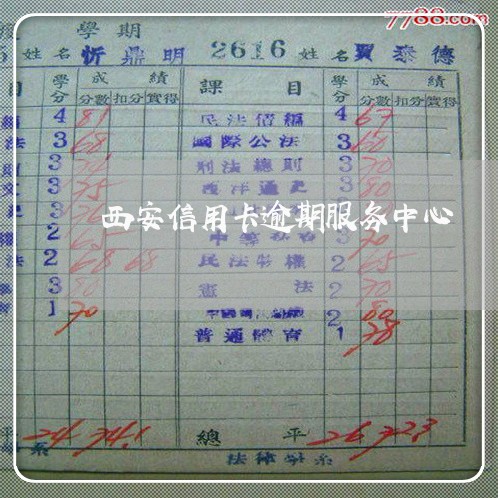 7788.com
學期
姓名 忻鼎明 2616 姓名 賈泰德
目 學分 成績 課目 學分 成績
分數 扣分 實得 分數 扣分 實得
4 81 民法債編 4 67
法 3 68 國際公法 3 60
則 3 刑法總則 3 70
3 75 西洋通史 3 80
3
西安信用卡逾期服务中心
權 2 65 3 70
法 2 68 68 民法物權 2 65
3 80 憲法 2 70
育 1 70 2 80
普通體育 1 78
平 24 74.1 總平 26 72.3
系 法律學系